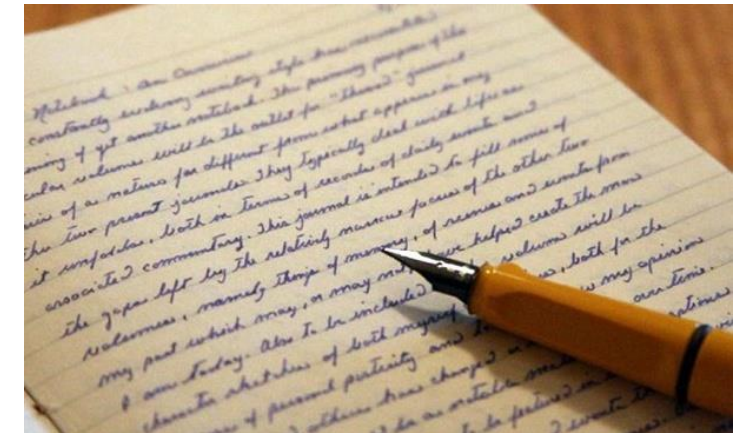 Notebook : An Overview
constantly evolving writing style has necessitated
ning of yet another notebook. The primary purpose of this
cular volumes will be the outlet for "themed" journal
ries of a nature far different from what appears in my
ther two present journals. They typically deal with life as
it unfolds, both in terms of records of daily events and
associated commentary. This journal is intended to fill some of
the gaps left by the relatively narrow focus of the other two
volumes, namely things of memory, of scenes and events from
my past which may, or may not, have helped create the man
I am today. Also to be included volume will be
character sketches of both myself, both for the
of personal posterity and my opinion
others have changed over time.
to be featured in